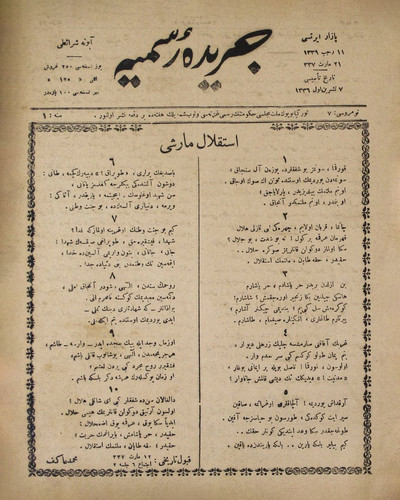 جریدهٔ رسمیه
بازار ایرتسی
۱۱ رجب ۱۳۳۹
۲۱ مارت ۳۳۷
تاریخ تأسیسی
۷ تشرین اول ۱۳۳۶
آبونه شرائطی
نومروسی : ۷
سنه : ۱
استقلال مارشی
۱
قورقما ، سونمز بو شفقلرده یوزن آل سنجاق ؛
سونمه‌دن یوردیمك اوستنده توتن اڭ صوڭ اوجاق .
او بنم ملتمك ییلدیزیدر ، پارلایاجق ؛
او بنمدر ، او بنم ملتمكدر آنجاق .
۲
چاتما ، قربان اولایم ، چهره‌ڭی ای نازلی هلال !
قهرمان عرقمه بر گول ! نه بو شدت ، بو جلال ؟
سڭا اولماز دوكولن قانلریمز صوڭره حلال . .
حقیدر ، حقه طاپان ، ملتمك استقلال !
۳
بن ازلدن بریدر حر یاشادم ، حر یاشارم
هانكی چیلغین بڭا زنجیر اوره‌جقمش ؟ شاشارم !
كوكره‌مش سیل كبی‌یم ؛ بندیمی چیكنر ، آشارم ؛
ییرتارم طاغلری ، انكینلره صیغمام ، طاشارم .
۴
غربك آفاقنی صارمشسه چلیك زرهلی دیوار ،
بنم ایمان طولو كوكسم كبی سرحدم وار .
اولوسون ، قورقما ! ناصل بویله بر ایمانی بوغار ،
« مدنیت ! » دیدیكڭ تك دیشی قالمش جاناوار ؟
۵
آرقداش ! یوردیمه آلچاقلری اوغراتمه ، صاقین .
سپر ایت كووده‌ڭی ، طورسون بو حیاسزجه آقین .
طوغه‌جقدر سڭا وعد ایتدیكی كونلر حقك . .
كیم بیلیر ، بلكه یارین . . بلكه یاریندن‌ده یاقین .
۶
باصدیغڭ یرلری « طوپراق ! » دییه‌رك كچمه ، طانی :
دوشون آلتنده‌كی بیڭلرجه كفنسز یاتانی .
سن شهید اوغلیسڭ ، اینجیتمه ، یازیقدر ، آتاڭی :
ویرمه ، دنیالری آلسه‌ڭ‌ده ، بو جنت وطنی .
۷
كیم بو جنت وطنڭ اوغرینه اولماز كه فدا ؟
شهدا فیشقیره‌جق طوپراغی صیقسه‌ڭ شهدا !
جانی ، جانانی ، بوتون واریمی آلسین‌ده خدا ،
ایتمه‌سین تك وطنمدن بنی دنیاده جدا .
۸
روحمك سندن ، الهی ، شودر آنجاق املی :
دكمه‌سین معبدیمك كوكسنه نامحرم الی .
بو اذانلر - كه شهادتلری دینك تملی -
ابدی یوردیمك اوستنده بنم ایكله‌ملی
۹
او زمان وجد ایله بیڭ سجده ایدر - وارسه - طاشم ،
هر جریحه‌مدن ، الهی ، بوشانوب قانلی یاشم
فیشقیرر روح مجرد كبی یردن نعشم ؛
او زمان یوكسله‌رك عرشه دكر بلكه باشم .
۱۰
دالغالان سن‌ده شفقلر كبی ای شانلی هلال !
اولسون آرتیق دوكولن قانلریمك هپسی حلال .
ابدیا سڭا یوق ، عرقمه یوق اضمحلال :
حقیدر ، حر یاشامش ، بایراغمك حریت ؛
حقیدر ، حقه طاپان ، ملتمك استقلال !
قبول تاریخی : ۱۲ مارت ۳۳۷
محمد عاكف